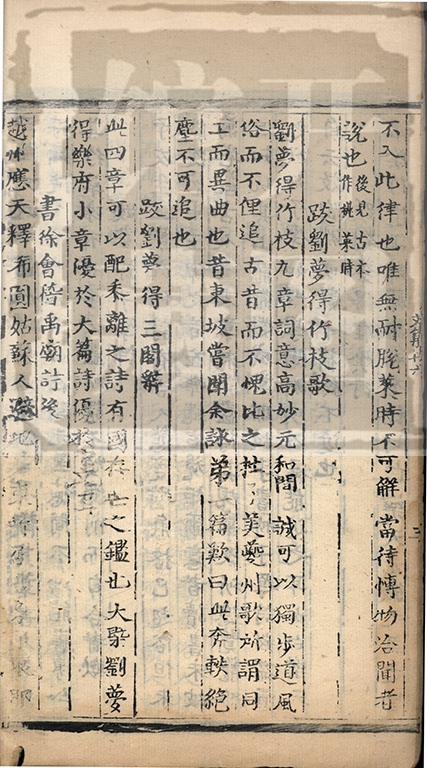 不入此律也唯無耐脫萊時不可解當待慱物洽聞者
說也後見古本作挑菜時
跋劉夢得竹枝歌
劉夢得竹枝九章詞意高妙元和間誠可以獨步道風
俗而不俚追古昔而不愧比之杜子美夔州歌所謂同
工而異曲也昔東坡嘗聞余詠第一篇歎曰此奔軼絕
塵不可追也
跋劉夢得三閣辭
此四章可以配黍離之詩有國存亡之鑑也大槩劉夢
得樂府小章優於大篇詩優於
書徐會稽禹廟詩後
越州應天釋希圓姑蘇人避地